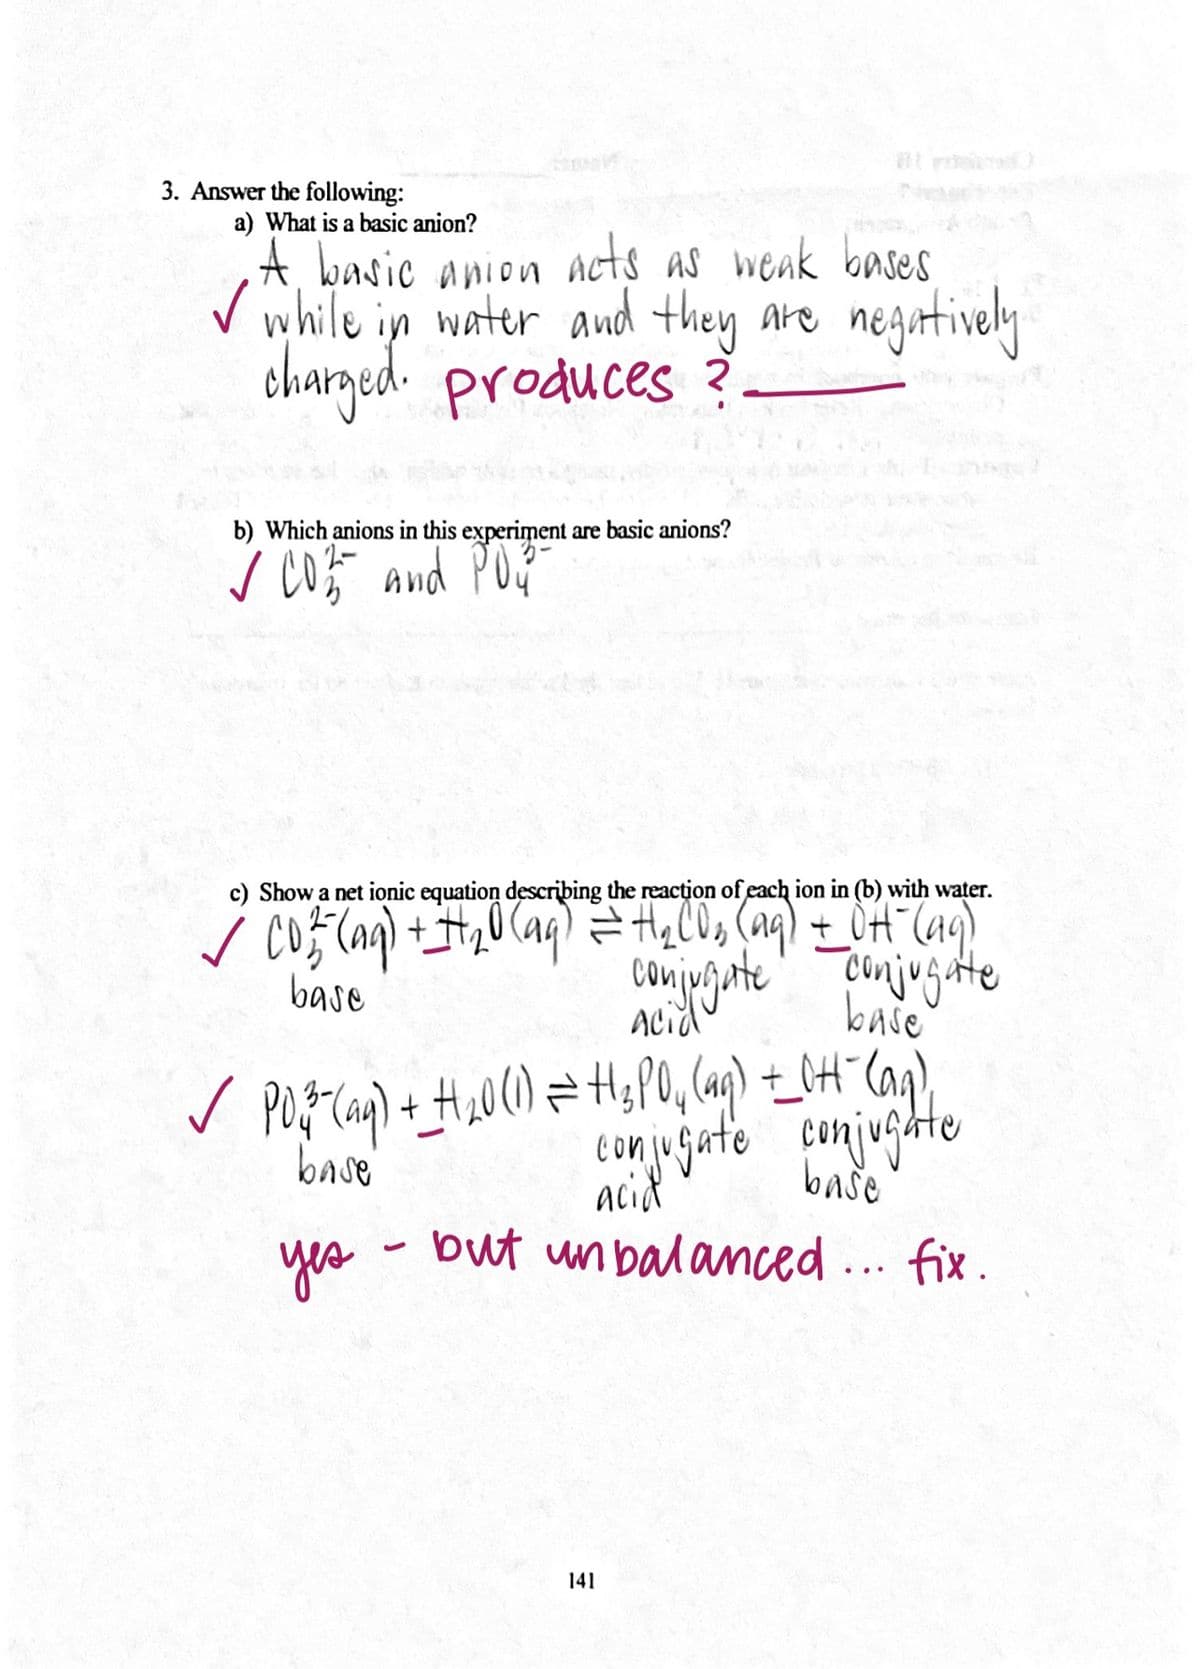 3. Answer the following:
a) What is a basic anion?
A basic anion acts as weak bases
✓ while in water and they are negatively
charged. produces ? ______
b) Which anions in this experiment are basic anions?
✓ CO₃²⁻ and PO₄³⁻
c) Show a net ionic equation describing the reaction of each ion in (b) with water.
✓ CO₃²⁻(aq) + _H₂O(aq) ⇌ H₂CO₃(aq) + _OH⁻(aq)
base conjugate acid conjugate base
✓ PO₄³⁻(aq) + _H₂O(l) ⇌ H₃PO₄(aq) + _OH⁻(aq)
base conjugate acid conjugate base
yes - but unbalanced ... fix.
141